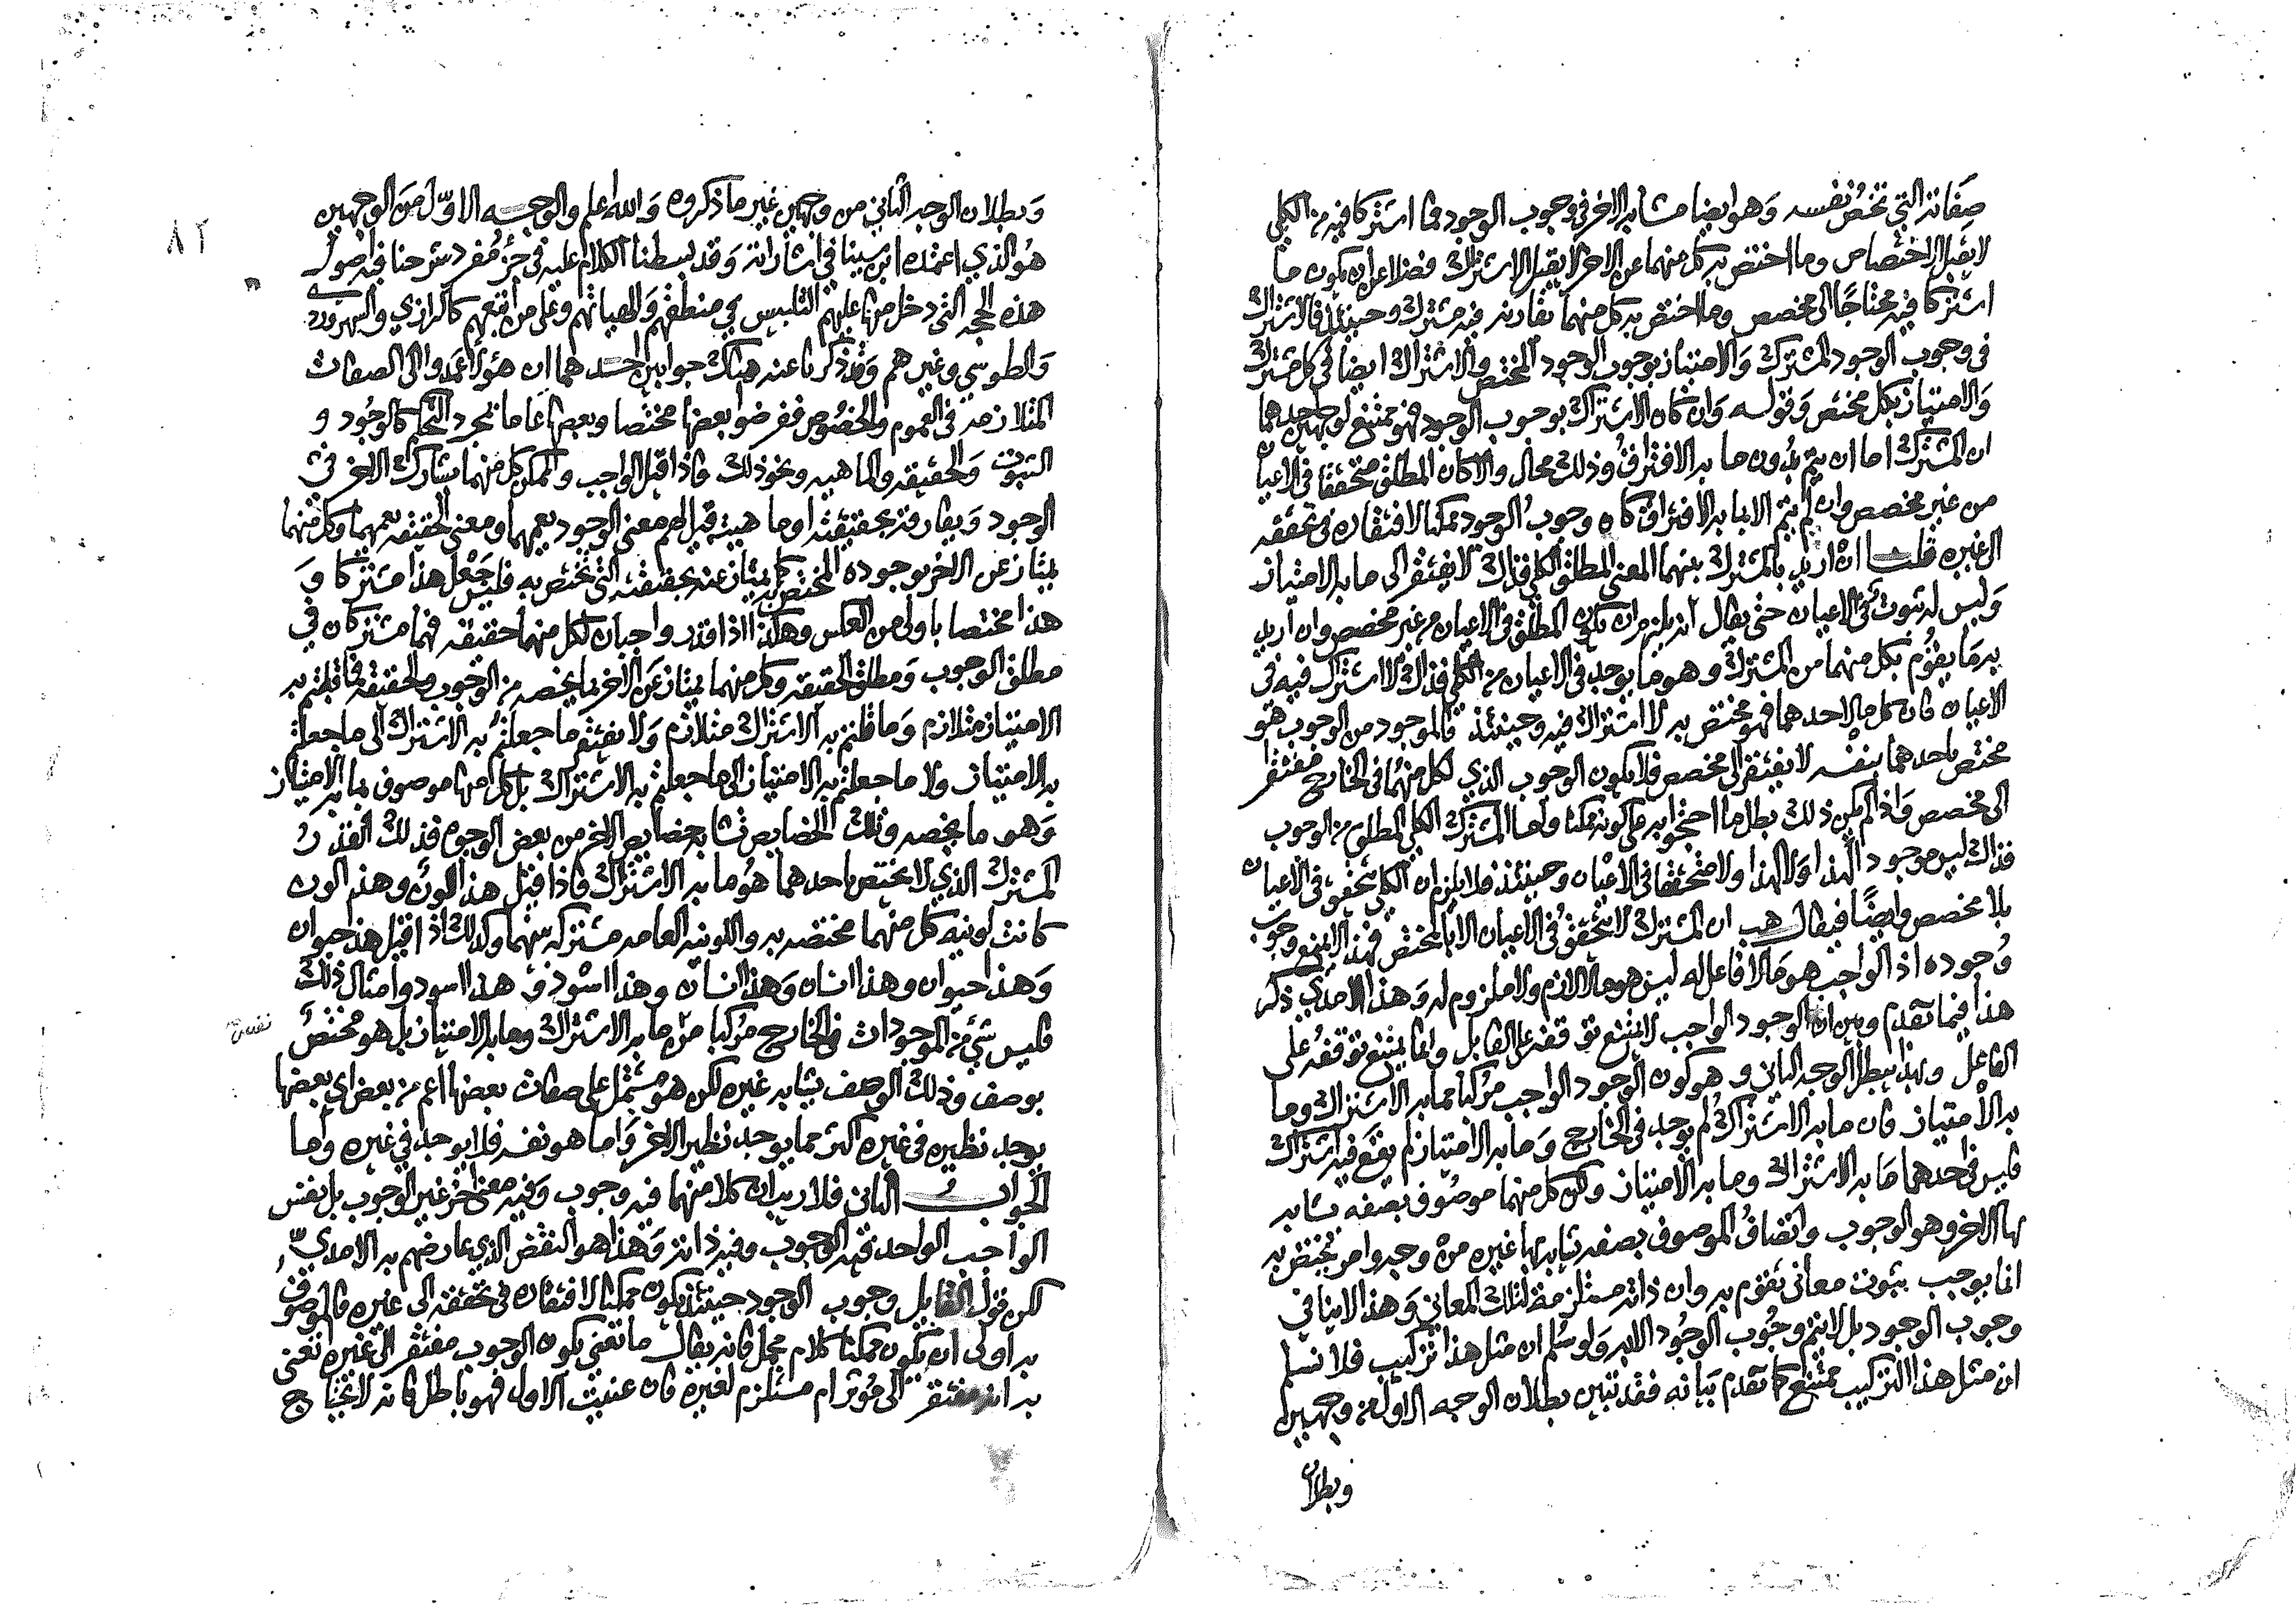 صفاته التي تخص نفسه وهو ايضا مشابه الاخر في وجوب الوجود فما اشتركا فيه من الكلي
لا يقبل الاختصاص وما اختص به كل منهما عن الاخر لا يقبل الاشتراك فضلا عن ان يكون ما
اشتركا فيه محتاجا الى مخصص وما اختص به كل منهما تقارنه فيه مشترك وحينئذ فالاشتراك
في وجوب الوجود المشترك والامتياز بوجوب الوجود المختص والاشتراك ايضا في كل مشترك
والامتياز بكل مختص وقوله وان كان الاشتراك بوجوب الوجود فهو ممتنع لوجهين احدهما
ان المشترك اما ان يتم بدون ما به الافتراق وذلك محال والا كان المطلق متحققا في الاعيان
من غير مخصص وان لم يتم الا بما به الافتراق كان وجوب الوجود ممكنا لافتقاره في تحققه
الى غيره قلت ان اريد بالمشترك بينهما المعنى المطلق الكلي فذاك لا يفتقر الى ما به الامتياز
وليس له ثبوت في الاعيان حتى يقال انه يلزم ان يكون المطلق في الاعيان من غير مخصص وان اريد
به ما يقوم بكل منهما من المشترك وهو ما يوجد في الاعيان من الكلي فذاك لا اشتراك فيه في
الاعيان فان كل ما لاحدهما فهو مختص به لا اشتراك فيه وحينئذ فالموجود من الوجوب هو
مختص باحدهما بنفسه لا يفتقر الى مخصص فلا يكون الوجوب الذي لكل منهما في الخارج مفتقرا
الى مخصص واذا لم يكن ذلك بطل ما احتجوا به على كونه ممكنا واما المشترك الكلي المطلق من الوجوب
فذاك ليس موجود لهذا ولا لهذا ولا متحققا في الاعيان وحينئذ فلا يلزم ان الكلي يتحقق في الاعيان
بلا مخصص وايضا فيقال هب ان المشترك لا يتحقق في الاعيان الا بالمختص فهذا لا يمنع وجوب
وجوده اذ الواجب هو ما لا فاعل له ليس هو ما لا لازم ولا ملزوم له وهذا الامدي ذكر
هذا فيما تقدم وبين ان الوجود الواجب لا يمتنع توقفه على القابل وانما يمتنع توقفه على
الفاعل وبهذا يبطل الوجه الثاني وهو كون الوجود الواجب مركبا مما به الاشتراك وما
به الامتياز فان ما به الاشتراك لم يوجد في الخارج وما به الامتياز لم يقع فيه اشتراك
فليس في احدهما ما به الاشتراك وما به الامتياز ولكن كل منهما موصوف بصفه يشابه
بها الاخر وهو الوجوب واتصاف الموصوف بصفه يشابه بها غيره من وجه وامر يختص به
انما يوجب ثبوت معاني تقوم به وان ذاته مستلزمه لتلك المعاني وهذا لا ينافي
وجوب الوجود بل لا يتم وجوب الوجود الا به ولو سلم ان مثل هذا تركيب فلا نسلم
ان مثل هذا التركيب ممتنع كما تقدم بيانه فقد تبين بطلان الوجه الاول من وجهين
وبطلان
٨٢
وبطلان الوجه الثاني من وجهين غير ما ذكروه والله اعلم والوجه الاول من الوجهين
هو الذي اعتمده ابن سينا في اشاراته وقد بسطنا الكلام عليه في جزء مفرد شرحنا فيه اصول
هذه الحجه التي دخل منها عليهم التلبيس في منطقهم والهياتهم وعلى من اتبعهم كالرازي والسهروردي
والطوسي وغيرهم وقد ذكرنا عنه هناك جوابين احدهما ان هؤلا عمدوا الى الصفات
المتلازمه في العموم والخصوص ففرضوا بعضها مختصا وبعضها عاما بمجرد التحكم كالوجود و
الثبوت والحقيقه والماهيه ونحو ذلك فاذا قيل الواجب والممكن كل منهما يشارك الاخر في
الوجود ويفارقه بحقيقته او ماهيته قيل لهم معنى الوجود يعمهما ومعنى الحقيقه يعمهما وكل منهما
يمتاز عن الاخر بوجوده المختص به كما يمتاز عنه بحقيقته التي تختص به فليس جعل هذا مشتركا و
هذا مختصا باولى من العكس وهكذا اذا قدر واجبان لكل منهما حقيقه فهما مشتركان في
مطلق الوجوب ومطلق الحقيقه وكل منهما يمتاز عن الاخر بما يخصه من الوجوب والحقيقه فما قلتم به
الامتياز متلازم وما قلتم به الاشتراك متلازم ولا يفتقر ما جعلتم به الاشتراك الى ما جعلتم
به الامتياز ولا ما جعلتم به الامتياز الى ما جعلتم به الاشتراك بل كل منهما موصوف بما به الامتياز
وهو ما يخصه وتلك الخصايص تشابه خصايص الاخر من بعض الوجوه فذلك القدر
المشترك الذي لا يختص باحدهما هو ما به الاشتراك فاذا قيل هذا لون وهذا لون
كانت لونيه كل منهما مختصه به واللونيه العامه مشتركه بينهما وكذلك اذا قيل هذا حيوان
وهذا حيوان وهذا انسان وهذا انسان وهذا اسود وهذا اسود وامثال ذلك
فليس شي من الموجودات في الخارج مركبا من ما به الاشتراك وما به الامتياز بل هو مختص
بوصف وذلك الوصف يشابه غيره لكن هو مشتمل على صفات بعضها اعم من بعض اي بعضها
يوجد نظيره في غيره اكثر مما يوجد نظير الاخر واما هو نفسه فلا يوجد في غيره واما
الجواب الثاني فلا ريب ان كلا منهما فيه وجوب وفيه معنى اخر غير الوجوب بل نفس
الواجب الواحد فيه الوجوب وفيه ذاته وهذا هو النقض الذي عارضهم به الامدي
لكن قول القايل وجوب الوجود حينئذ يكون ممكنا لافتقاره في تحققه الى غيره فالموصوف
به اولى ان يكون ممكنا كلام مجمل فانه يقال ما تعني بكون الوجوب مفتقر الى غيره تعني
به انه مفتقر الى مؤثر ام مستلزم لغيره فان عنيت الاول فهو باطل فانه لا يحتاج